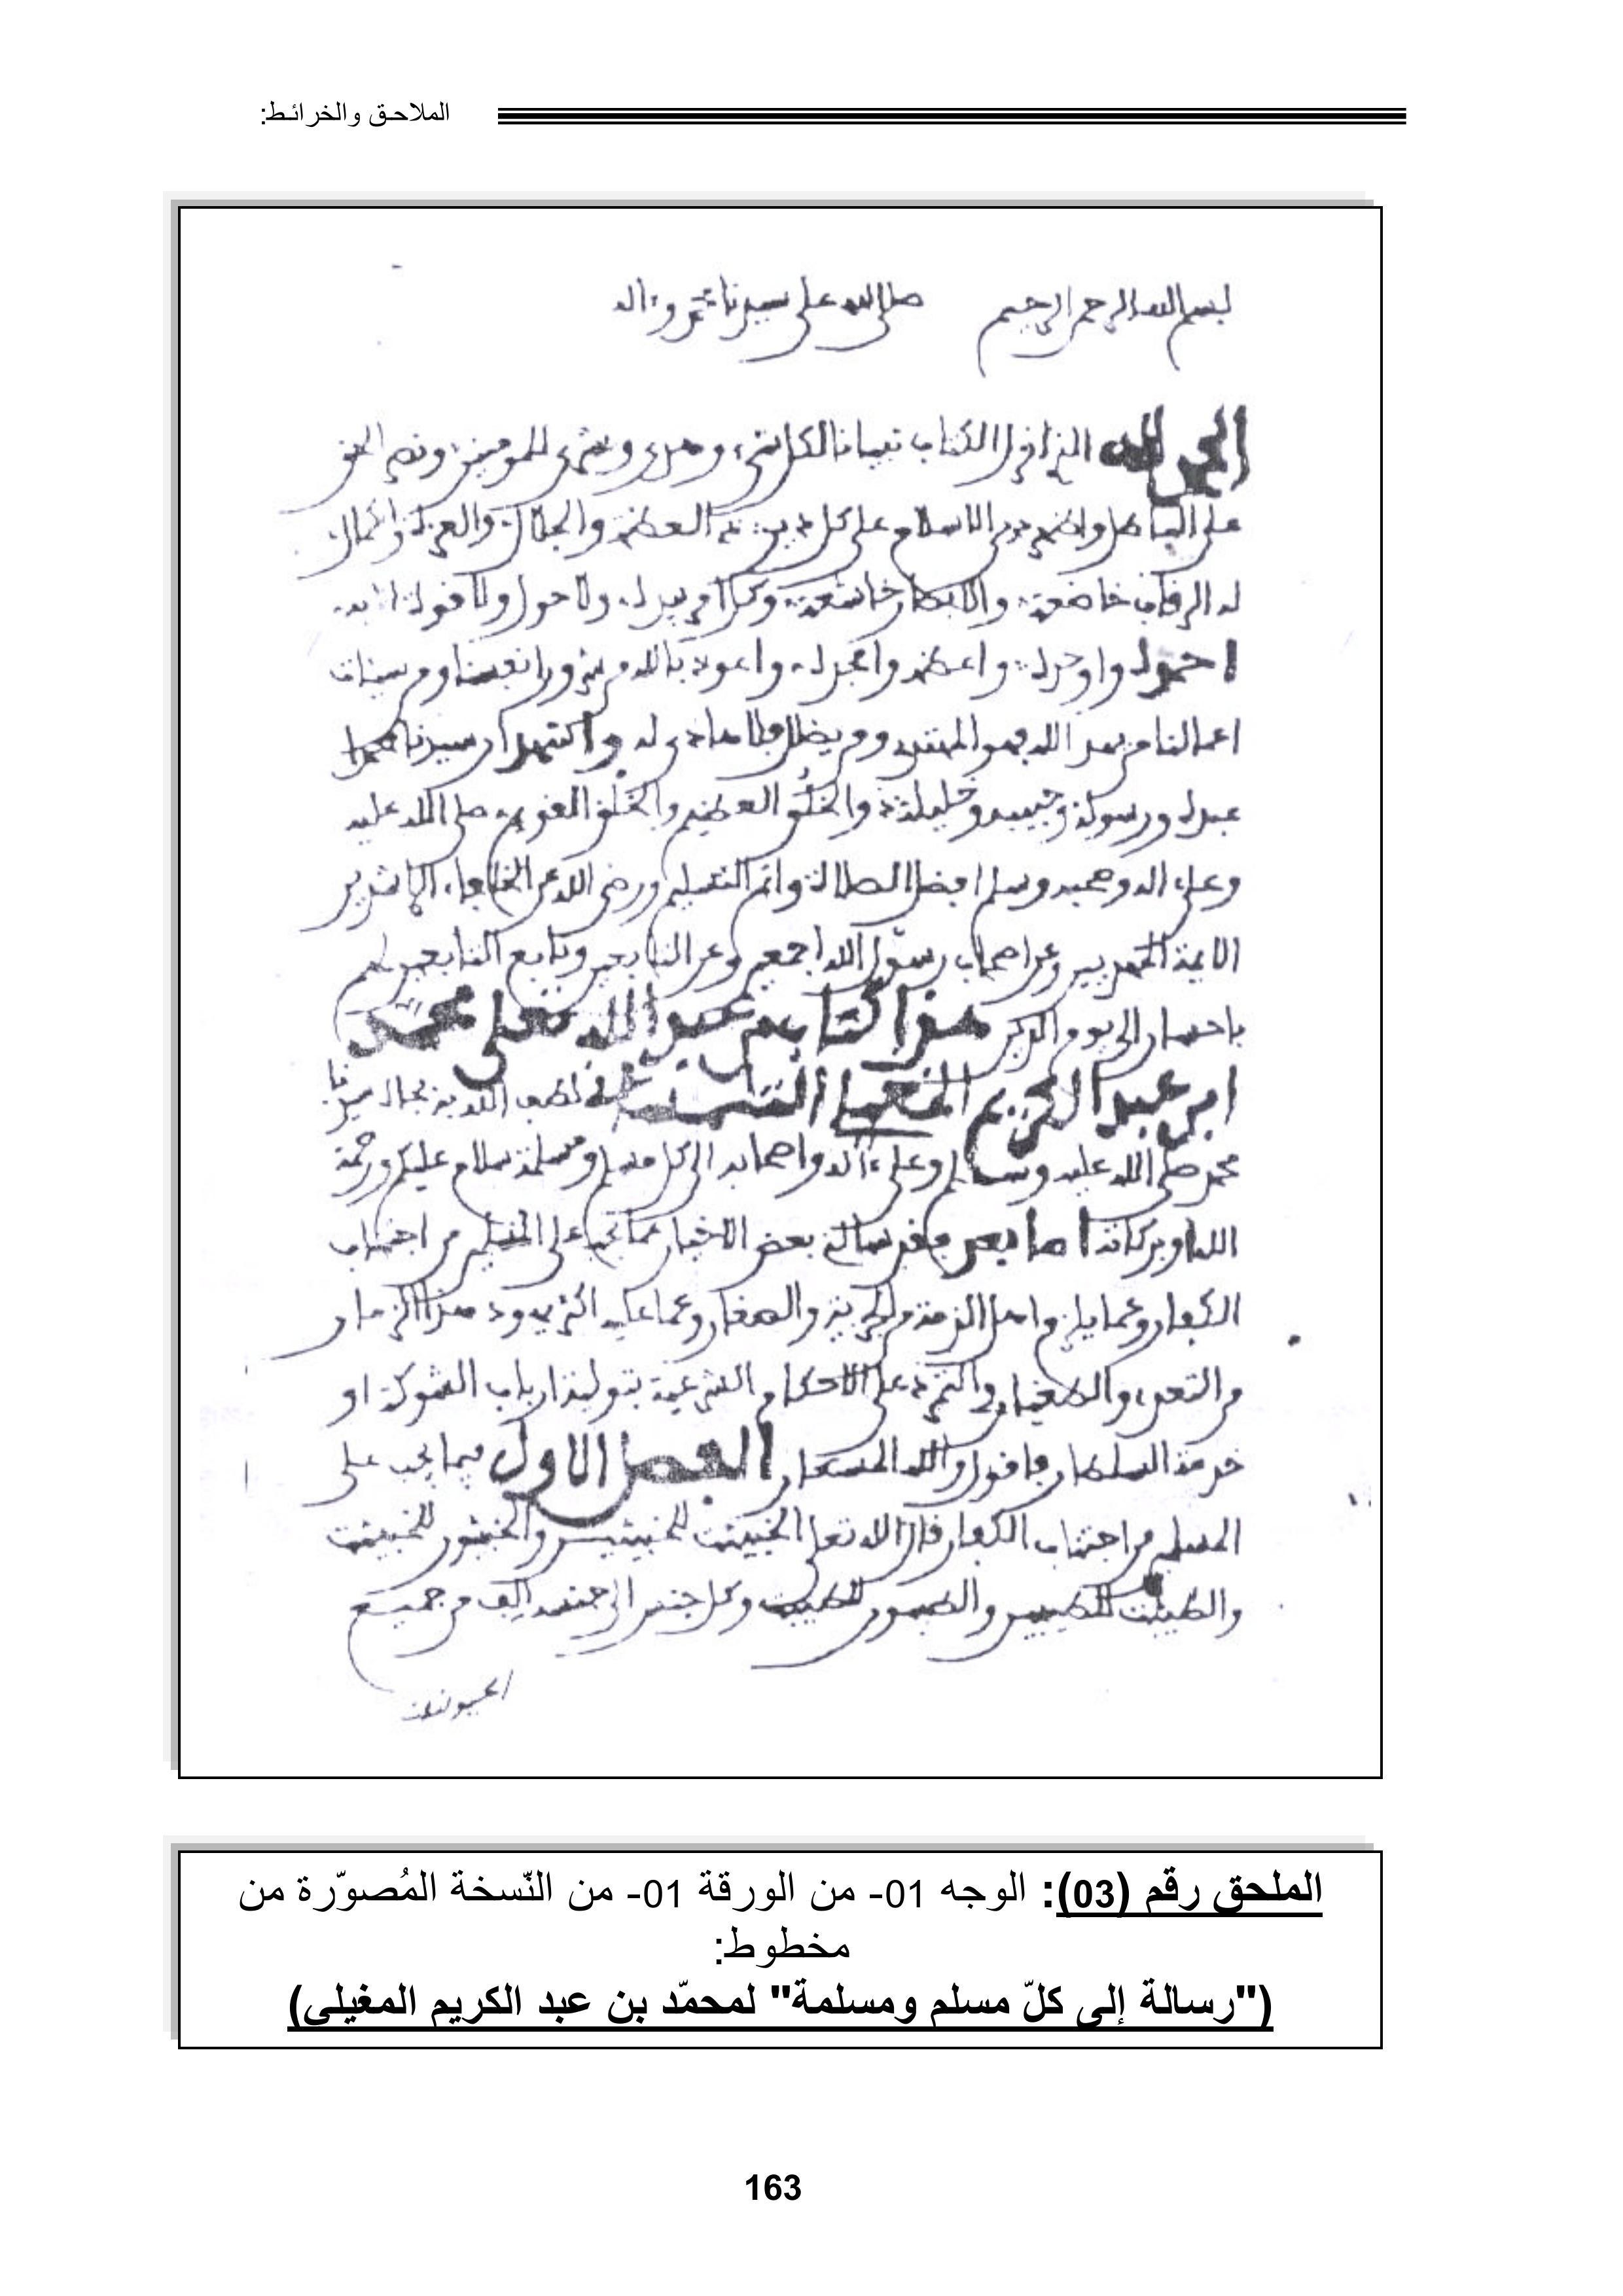 الملاحـق والخرائـط:
بسم الله الرحمن الرحيم صلى الله على سيدنا محمد وءاله
الحمد لله الذي انزل الكتاب تبيانا لكل شيء وهدى وبشرى للمومنين ونصر الحق
على الباطل واظهر دين الاسلام على كل دين العظمة والجلال والعزة والكمال
له الرقاب خاضعة والابصار خاشعة وكل امر بيده ولا حول ولا قوة الا به
احمده واوحده واعظمه وامجده واعوذ بالله من شرور انفسنا ومن سيئات
اعمالنا من يهد الله فهو المهتدي ومن يضلل فلا هادي له واشهد ان سيدنا محمدا
عبده ورسوله وحبيبه وخليله والخلق العظيم والخلق القويم صلى الله عليه
وعلى اله وصحبه وسلم افضل الصلاة واتم التسليم ورضي الله عن الخلفاء الراشدين
الايمة المهديين وعن اصحاب رسول الله اجمعين وعن التابعين وتابع التابعين لهم
باحسان الى يوم الدين هذا كتاب من عبد الله تعلى محمد
ابن عبد الكريم المغيلي التلمساني لطف الله به بجاه سيدنا
محمد صلى الله عليه وسلم وعلى ءاله واصحابه الى كل مسلم ومسلمة سلام عليكم ورحمة
الله وبركاته اما بعد فقد سالني بعض الاخيار عما يجب على المسلمين من اجتناب
الكفار وعما يلزم اهل الذمة من الجزية والصغار وعما عليه اكثر يهود هذا الزمان
من التعدي والطغيان والتمرد على الاحكام الشرعية بتولية ارباب الشوكة او
خدمة السلطان فاقول والله المستعان الفصل الاول فيما يجب على
المسلمين من اجتناب الكفار قال الله تعلى الخبيثت للخبيثيـن والخبيثون للخبيثت
والطيبت للطيبين والطيبون للطيبت وكل جنس الى جنسه الف من جميـع
الملحق رقم (03): الوجه 01- من الورقة 01- من النّسخة المُصوّرة من
مخطوط:
("رسالة إلى كلّ مسلم ومسلمة" لمحمّد بن عبد الكريم المغيلي)
163